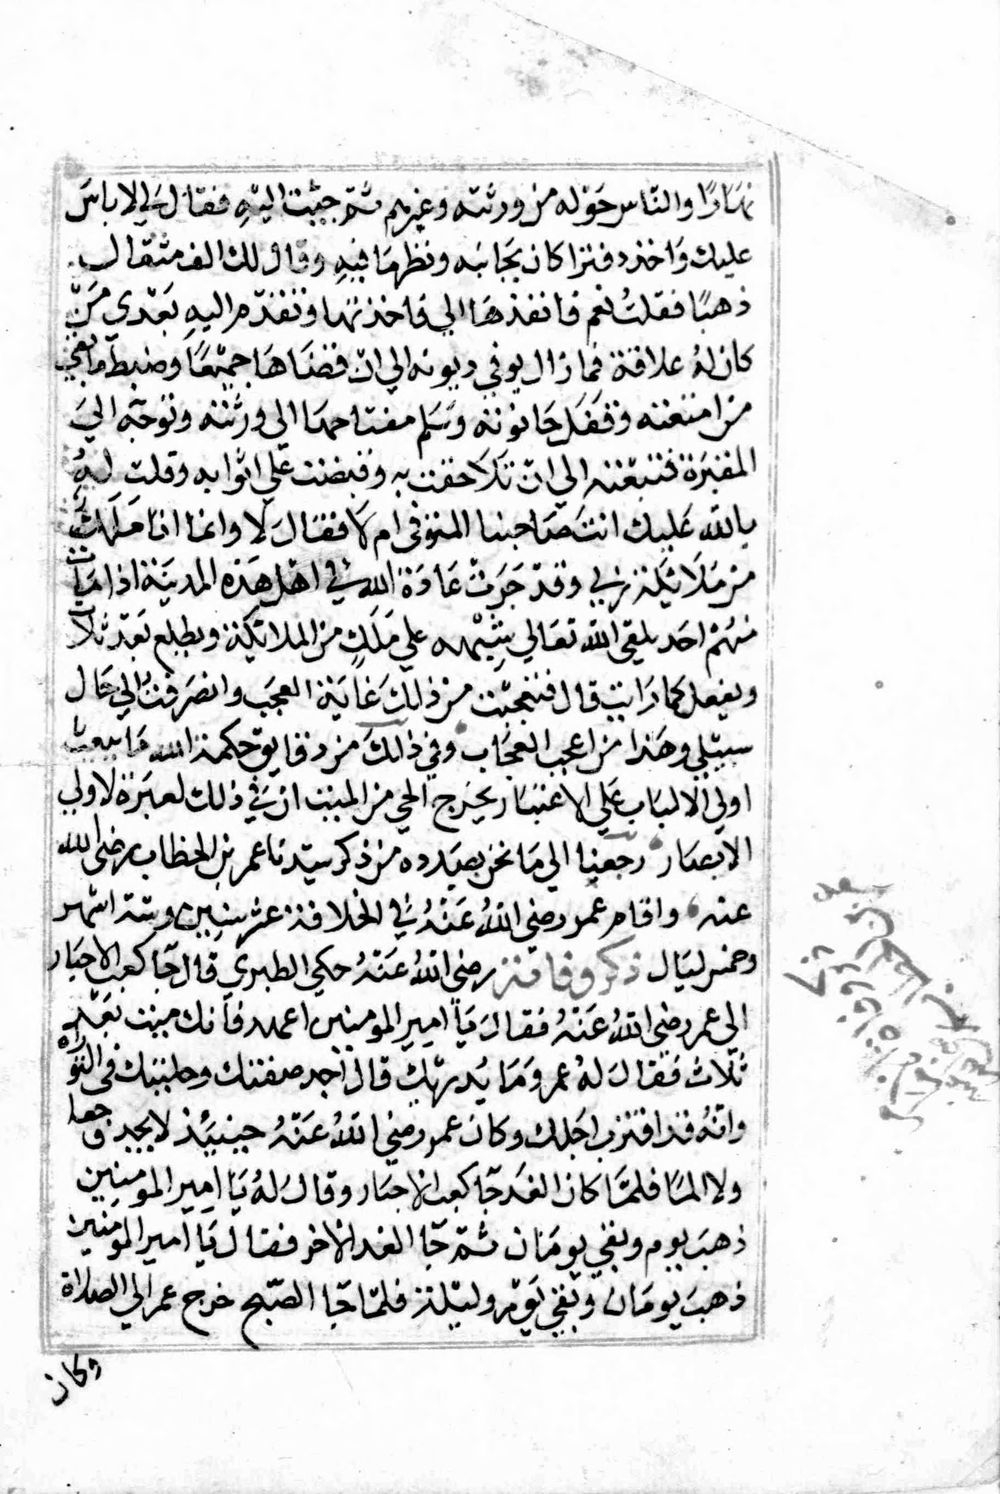 نهارًا والناس حوله من ورثته وغيرهم ثم جيت اليه فقال لي لا باس
عليك واخذ دفترا كان بجانبه ونظرها فيه وقال لك الف مثقال
ذهبًا فقلت نعم فانفذها الي فاخذتها وتقدم اليه بعدي من
كان له علاقة فما زال يوفي ديونه الي ان قضاها جميعا وضبط ما بقي
من امتعته وقفل حانوته وسلم مفتاحها الي ورثته وتوجه الي
المقبرة فتبعته الي ان تلاحقت به وقبضت علي اثوابه وقلت له
بالله عليك انت صاحبنا المتوفى ام لا فقال لا وانما انا ملك
من ملايكة ربي وقد جرت عادة الله في اهل هذه المدينة اذا مات
منهم احد يلقي الله تعالي شبهه علي ملك من الملايكة ويطلع بعد ثلاث
ويفعل كما رايت قال فتعجبت من ذلك غاية العجب وانصرفت الي حال
سبيلي وهذا من اعجب العجاب وفي ذلك من دقايق حكمة الله ما يبعث
اولي الالباب علي الاعتبار يخرج الحي من الميت ان في ذلك لعبرة لاولي
الابصار رجعنا الي ما نحن بصدده من ذكر سيدنا عمر بن الخطاب رضى الله
عنه واقام عمر رضي الله عنه في الخلافة عشر سنين وستة اشهر
وخمس ليال ذكر وفاته رضى الله عنه حكي الطبري قال جا كعب الاحبار
الى عمر رضى الله عنه فقال يا امير المومنين اعهد فانك ميت بعد
ثلاث فقال له عمر وما يدريك قال اجد صفتك وحليتك فى التوراه
وانه قد اقترب اجلك وكان عمر رضي الله عنه حينيذ لا يجد وجعا
ولا الما فلما كان الغد جا كعب الاحبار وقال له يا امير المومنين
ذهب يوم وبقي يومان ثم جا الغد الاخر فقال يا امير المومنين
ذهب يومان وبقي يوم وليلة فلما جا الصبح خرج عمر الي الصلاة
وكان